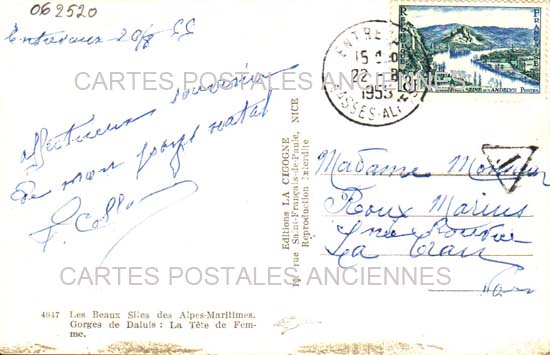 062520
Entrevaux 20/8 55
affectueux souvenir
de mon pays natal
ENTREVAUX
22 8
1955
BASSES-ALPES
REPUBLIQUE FRANÇAISE
POSTES
CARTES POSTALES ANCIENNES
Editions LA CIGOGNE
rue Saint-François-de-Paule, NICE
Reproduction interdite
Madame Monsieur
Roux Marius
La Crau
Var
CARTES POSTALES ANCIENNES
4647 Les Beaux Sites des Alpes-Maritimes.
Gorges de Daluis : La Tête de Fem-
me.